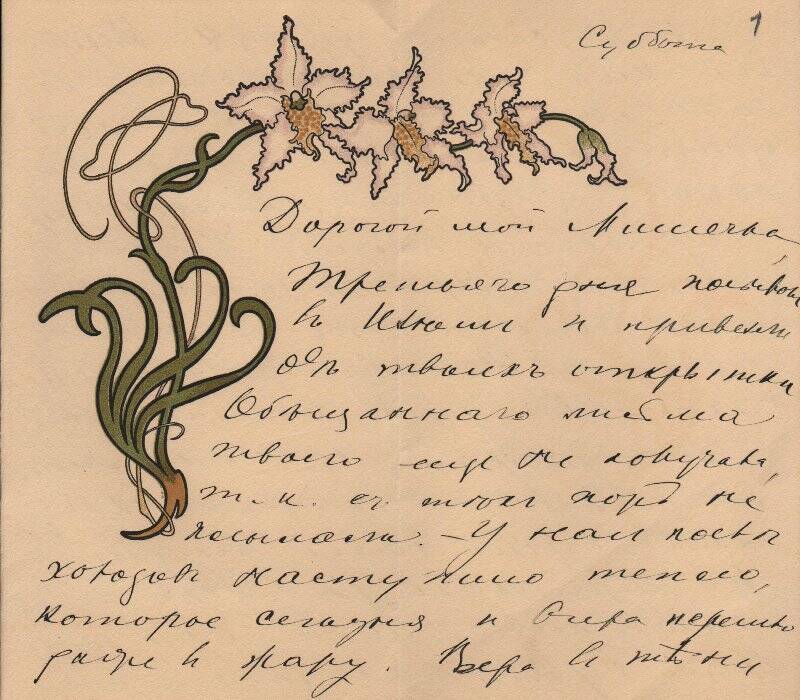 1
Суббота
Дорогой мой Мишечка,
Третьяго дня посылали
въ Кюели и привезли
обѣ твоихъ открытки
Обѣщаннаго письма
твоего еще не получала,
т. к. съ тѣхъ поръ не
посылали. — У насъ послѣ
холодовъ наступило тепло,
которое сегодня и вчера перешло
даже въ жару. Вера въ тѣни